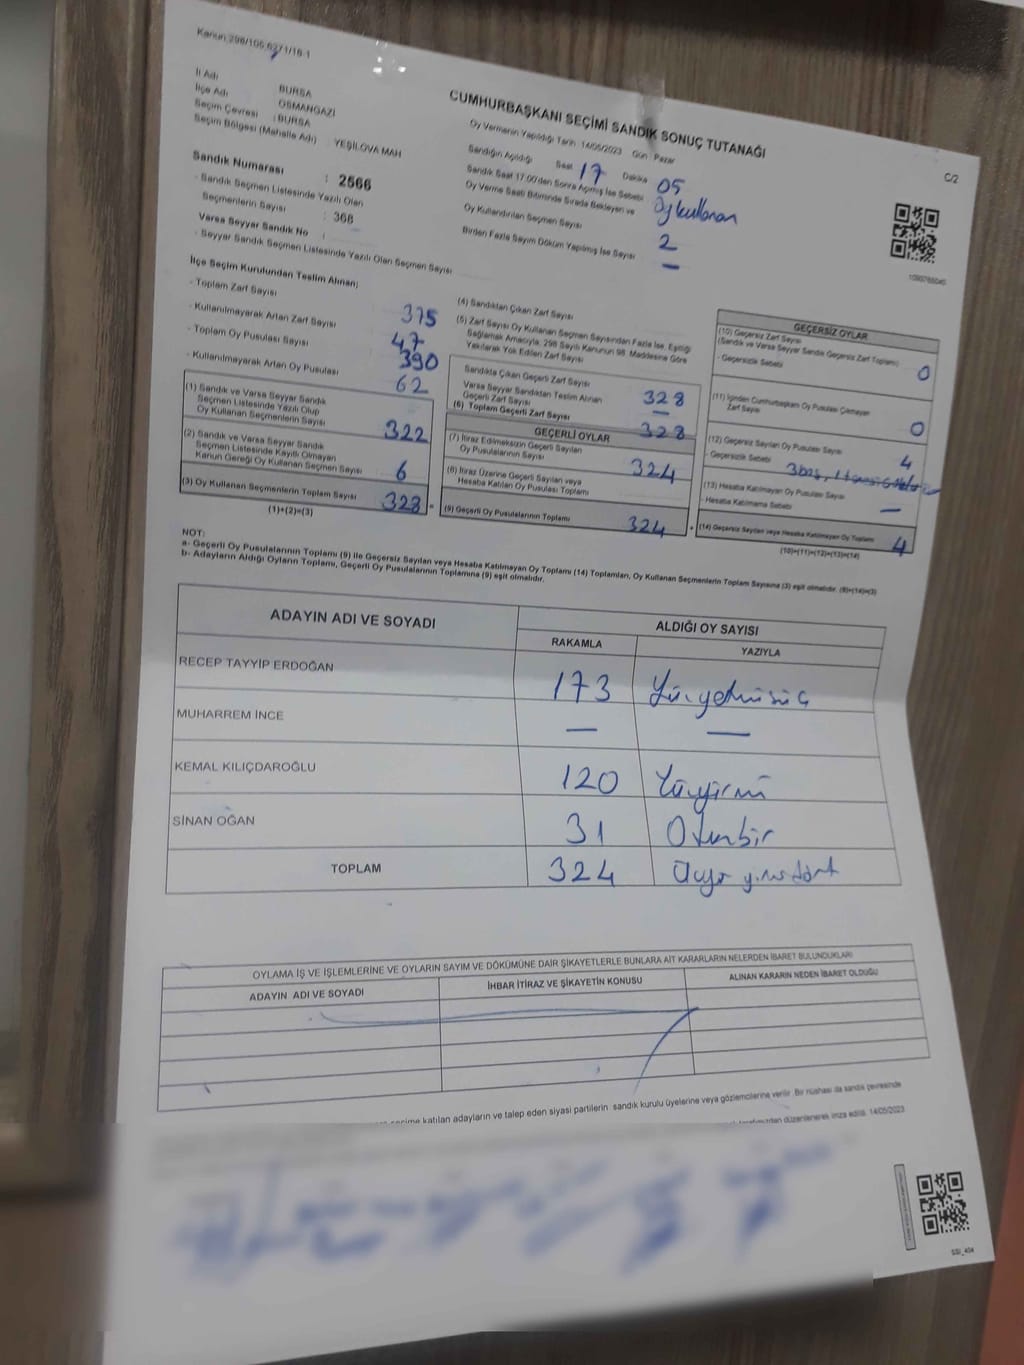 Kanun 298/105,6271/18.1
CUMHURBAŞKANI SEÇİMİ SANDIK SONUÇ TUTANAĞI
C/2
İl Adı BURSA
İlçe Adı OSMANGAZİ
Seçim Çevresi : BURSA
Seçim Bölgesi (Mahalle Adı) YEŞİLOVA MAH
Sandık Numarası : 2566
- Sandık Seçmen Listesinde Yazılı Olan
Seçmenlerin Sayısı : 368
Varsa Seyyar Sandık No :
- Seyyar Sandık Seçmen Listesinde Yazılı Olan Seçmen Sayısı
Oy Vermenin Yapıldığı Tarih 14/05/2023 Gün Pazar
Sandığın Açıldığı Saat 17 Dakika 05
Sandık Saat 17.00'den Sonra Açılmış İse Sebebi oy kullanan
Oy Verme Saati Bitiminde Sırada Bekleyen ve
Oy Kullandırılan Seçmen Sayısı 2
Birden Fazla Sayım Döküm Yapılmış İse Sayısı —
İlçe Seçim Kurulundan Teslim Alınan;
- Toplam Zarf Sayısı 375
- Kullanılmayarak Artan Zarf Sayısı 47
- Toplam Oy Pusulası Sayısı 390
- Kullanılmayarak Artan Oy Pusulası 62
(1) Sandık ve Varsa Seyyar Sandık
Seçmen Listesinde Yazılı Olup
Oy Kullanan Seçmenlerin Sayısı 322
(2) Sandık ve Varsa Seyyar Sandık
Seçmen Listesinde Kayıtlı Olmayan
Kanun Gereği Oy Kullanan Seçmen Sayısı 6
(3) Oy Kullanan Seçmenlerin Toplam Sayısı 328
(1)+(2)=(3)
(4) Sandıktan Çıkan Zarf Sayısı
(5) Zarf Sayısı Oy Kullanan Seçmen Sayısından Fazla İse, Eşitliği
Sağlamak Amacıyla, 298 Sayılı Kanunun 98. Maddesine Göre
Yakılarak Yok Edilen Zarf Sayısı
Sandıkta Çıkan Geçerli Zarf Sayısı 328
Varsa Seyyar Sandıktan Teslim Alınan
Geçerli Zarf Sayısı —
(6) Toplam Geçerli Zarf Sayısı 328
GEÇERLİ OYLAR
(7) İtiraz Edilmeksizin Geçerli Sayılan
Oy Pusulalarının Sayısı 324
(8) İtiraz Üzerine Geçerli Sayılan veya
Hesaba Katılan Oy Pusulası Toplamı
(9) Geçerli Oy Pusulalarının Toplamı 324
GEÇERSİZ OYLAR
(10) Geçersiz Zarf Sayısı
(Sandık ve Varsa Seyyar Sandık Geçersiz Zarf Toplamı)
- Geçersizlik Sebebi 0
(11) İçinden Cumhurbaşkanı Oy Pusulası Çıkmayan
Zarf Sayısı 0
(12) Geçersiz Sayılan Oy Pusulası Sayısı 4
- Geçersizlik Sebebi 3 boş, 1 tanesi
(13) Hesaba Katılmayan Oy Pusulası Sayısı
- Hesaba Katılmama Sebebi —
(14) Geçersiz Sayılan veya Hesaba Katılmayan Oy Toplamı 4
(10)+(11)+(12)+(13)=(14)
NOT:
a- Geçerli Oy Pusulalarının Toplamı (9) ile Geçersiz Sayılan veya Hesaba Katılmayan Oy Toplamı (14) Toplamları, Oy Kullanan Seçmenlerin Toplam Sayısına (3) eşit olmalıdır. (9)+(14)=(3)
b- Adayların Aldığı Oyların Toplamı, Geçerli Oy Pusulalarının Toplamına (9) eşit olmalıdır.
ADAYIN ADI VE SOYADI ALDIĞI OY SAYISI
RAKAMLA YAZIYLA
RECEP TAYYİP ERDOĞAN 173 Yüzyetmişüç
MUHARREM İNCE — —
KEMAL KILIÇDAROĞLU 120 Yüzyirmi
SİNAN OĞAN 31 Otuzbir
TOPLAM 324 Üçyüz yirmi dört
OYLAMA İŞ VE İŞLEMLERİNE VE OYLARIN SAYIM VE DÖKÜMÜNE DAİR ŞİKAYETLERLE BUNLARA AİT KARARLARIN NELERDEN İBARET BULUNDUKLARI
ADAYIN ADI VE SOYADI İHBAR İTİRAZ VE ŞİKAYETİN KONUSU ALINAN KARARIN NEDEN İBARET OLDUĞU
seçime katılan adayların ve talep eden siyasi partilerin sandık kurulu üyelerine veya gözlemcilerine verilir. Bir nüshası da sandık çevresinde
düzenlenerek imza edildi. 14/05/2023